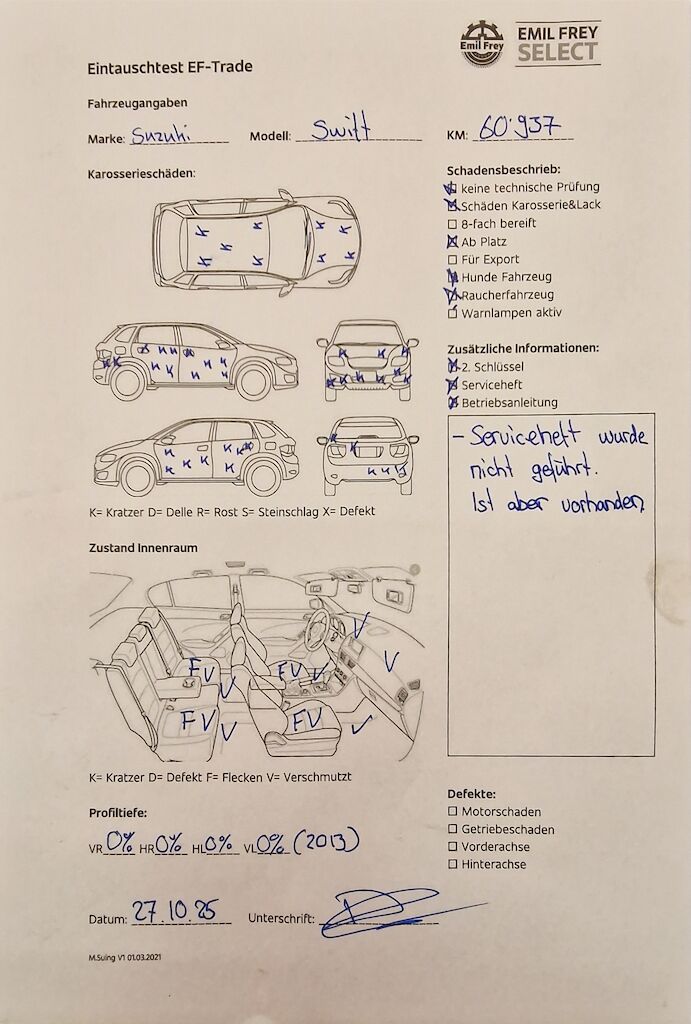 Emil Frey
EMIL FREY
SELECT
Eintauschtest EF-Trade
Fahrzeugangaben
Marke: Suzuki Modell: Swift KM: 60'937
Karosserieschäden:
Schadensbeschrieb:
keine technische Prüfung
Schäden Karosserie&Lack
8-fach bereift
Ab Platz
Für Export
Hunde Fahrzeug
Raucherfahrzeug
Warnlampen aktiv
K K K K K K K K K
Zusätzliche Informationen:
2. Schlüssel
Serviceheft
Betriebsanleitung
- Serviceheft wurde
nicht geführt.
Ist aber vorhanden
K= Kratzer D= Delle R= Rost S= Steinschlag X= Defekt
Zustand Innenraum
V
V
FV FV V
V
FV V FV V
K= Kratzer D= Defekt F= Flecken V= Verschmutzt
Profiltiefe:
VR 0% HR 0% HL 0% VL 0% (2013)
Defekte:
Motorschaden
Getriebeschaden
Vorderachse
Hinterachse
Datum: 27.10.25 Unterschrift:
M.Suing V1 01.03.2021